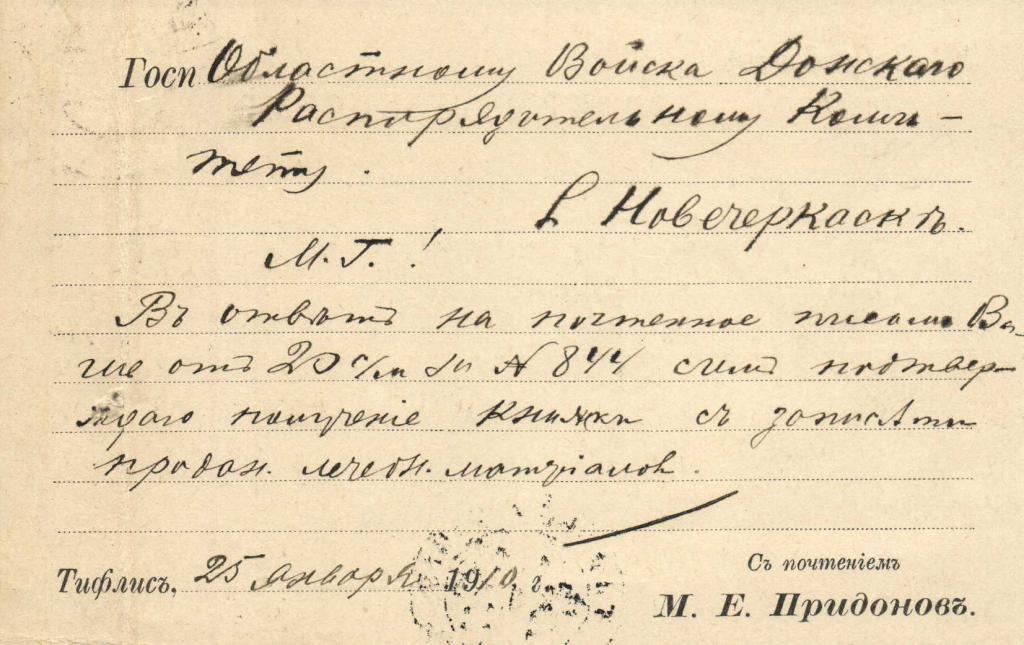 Госп Областному Войска Донскаго
Распорядительному Коми-
тету.
Новочеркасскъ.
М. Г.!
Въ отвѣтъ на почтенное письмо Ва-
ше отъ 20 с/м за № 844 симъ подтвер-
ждаю полученіе книжки съ записями
продан. лечебн. матеріалов.
Тифлисъ, 25 Января 1910 г.
Съ почтеніемъ
М. Е. Придоновъ.